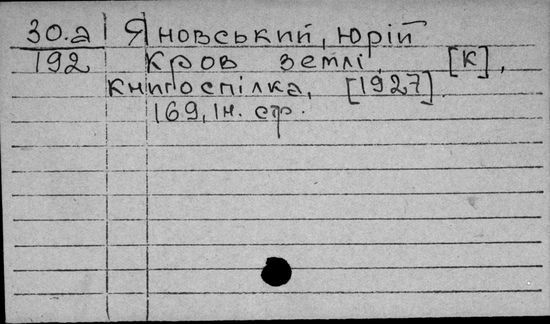 30.а Яновський, Юрій
192 Кров землі, [К],
Книгоспілка, [1927]
169, 1н. стр.